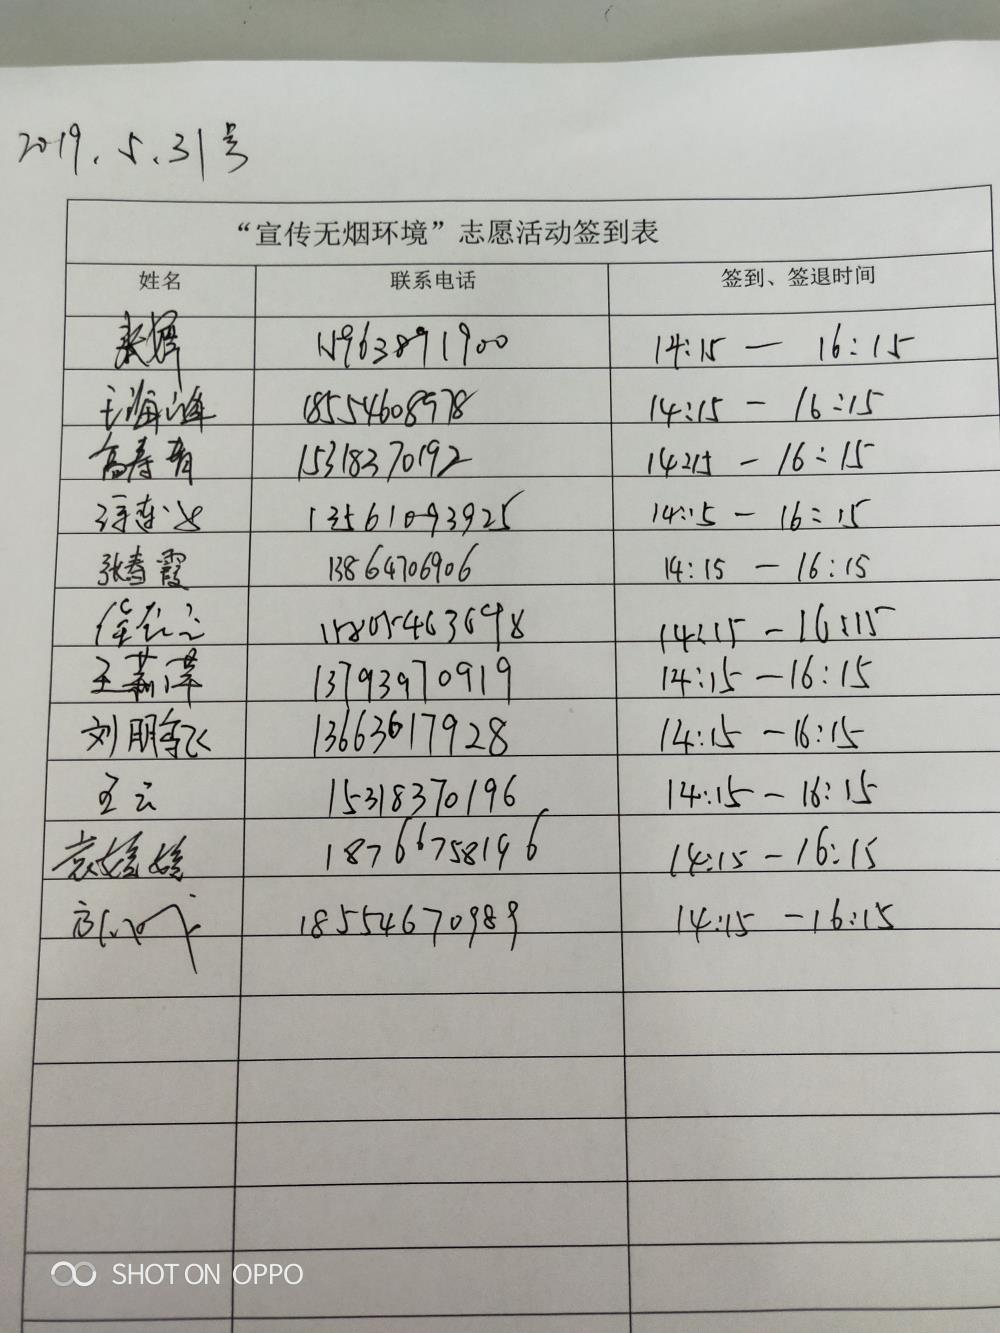 2019.5.31号
“宣传无烟环境”志愿活动签到表
姓名 联系电话 签到、签退时间
15963891900 14:15 — 16:15
王海峰 18554608978 14:15 - 16:15
高寿青 15318370192 14:15 - 16:15
13561093925 14:15 - 16:15
张春霞 13864706906 14:15 - 16:15
14:15 - 16:15
王莉萍 13793970919 14:15 - 16:15
刘朋飞 13663617928 14:15 - 16:15
王云 15318370196 14:15 - 16:15
袁媛媛 18766758196 14:15 - 16:15
18554670989 14:15 - 16:15
SHOT ON OPPO